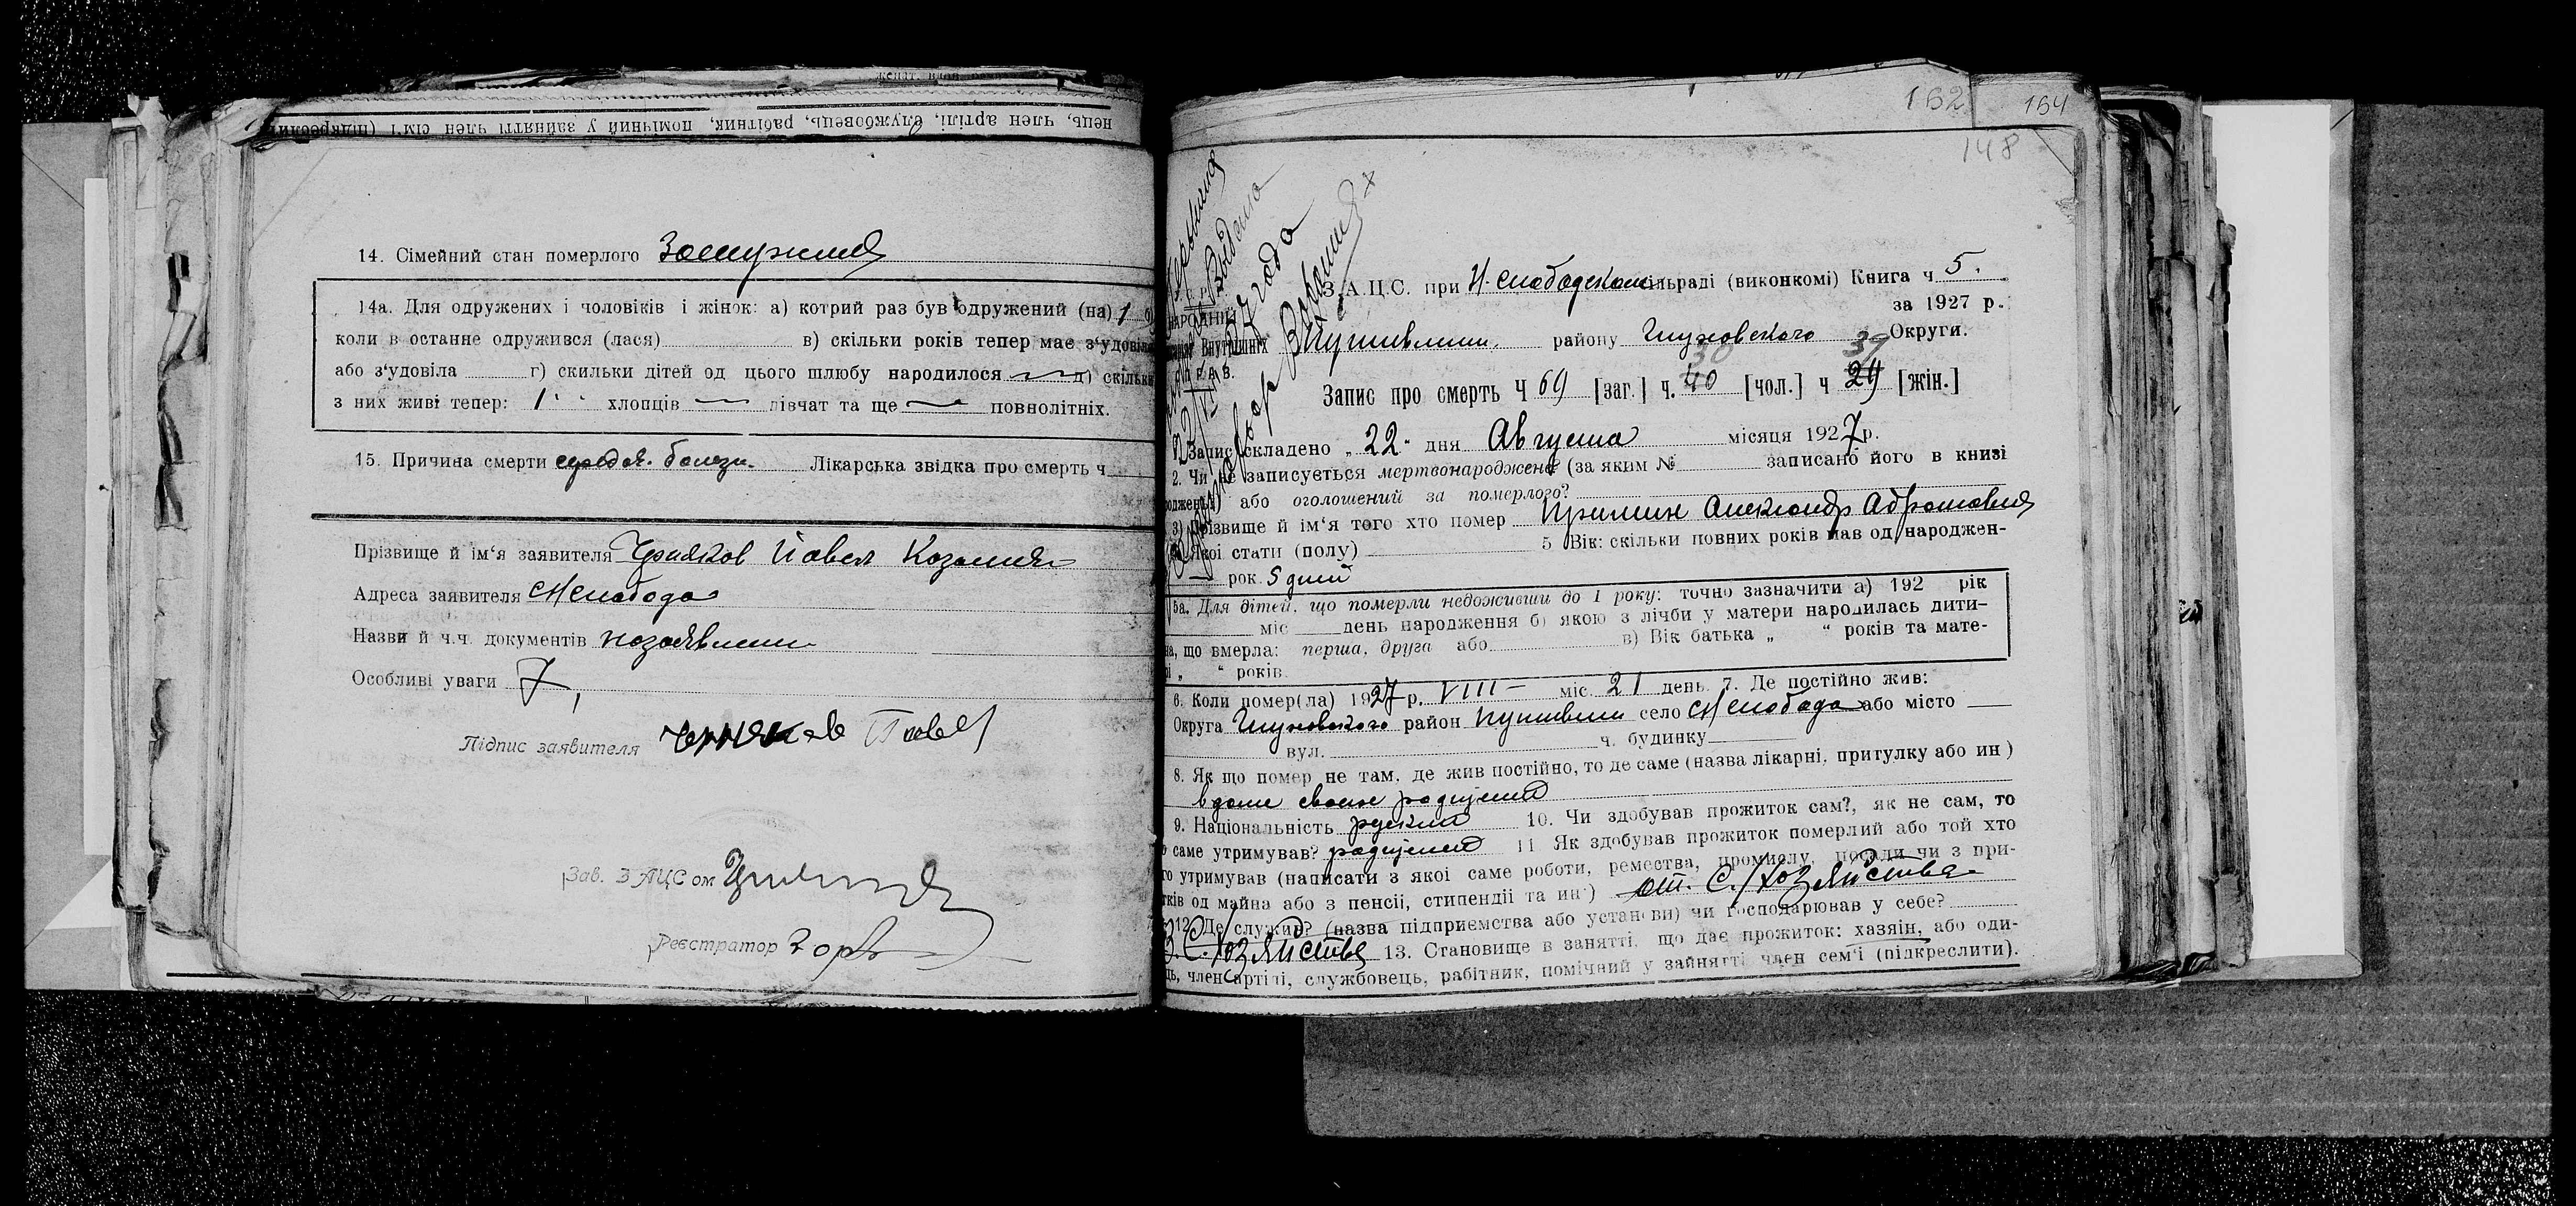 нець, член артілі, службовець, рабітник, помічний у зайнятті член сім'ї (підкреслити)
14. Сімейний стан померлого Замужняя
14а. Для одружених і чоловіків і жінок: а) котрий раз був одружений (на) 1
коли в останне одружився (лася) в) скільки років тепер має з'удовіла
або з'удовіла г) скильки дітей од цього шлюбу народилося д) скільки
з них живі тепер: 1 хлопців — дівчат та ще — повнолітніх.
15. Причина смерти Лікарська звідка про смерть ч
Прізвище й ім'я заявителя Черняков Павел
Адреса заявителя Слабода
Назви й ч.ч. документів
Особливі уваги 7,
Підпис заявителя Черняков Павел
Зав. ЗАЦСом
Реєстратор
162 164
148
З.А.Ц.С. при Н. слабодском сільраді (виконкомі) Книга ч 5.
за 1927 р.
НАРОДНІЙ
Внутрішніх Путивльск. району Глуховского Округи.
СПРАВ.
30 39
Запис про смерть Ч 69 [заг.] ч. 40 [чол.] ч 29 [жін.]
Запис складено „22" дня Августа місяця 1927 р.
2. Чи не записується мертвонароджене (за яким № записано його в книзі
або оголошений за померлого?
3) Прізвище й ім'я того хто помер Александр Абрамович
Якої стати (полу) 5 Вік: скільки повних років мав од народжен-
— рок 5 дней
5а. Для дітей, що померли недоживши до 1 року: точно зазначити а) 192 рік
міс день народження б) якою з лічби у матери народилась дити-
на, що вмерла: перша, друга або в) Вік батька „ " років та мате-
рі „ " років.
6. Коли помер(ла) 1927 р. VIII — міс. 21 день. 7. Де постійно жив:
Округа Глуховского район Путивльск село Н Слабода або місто —
вул. ч. будинку
8. Як що помер не там, де жив постійно, то де саме (назва лікарні, притулку або ин)
в доме своих родителей
9. Національність руский 10. Чи здобував прожиток сам?, як не сам, то
саме утримував? родители 11 Як здобував прожиток померлий або той хто
го утримував (написати з якоі саме роботи, ремества, промислу, посади чи з при-
тків од майна або з пенсіі, стипендіі та ин) от. С./Хозяйства
12. Де служив? (назва підприемства або установи) чи господарював у себе?
В С./Хозяйстве 13. Становище в занятті, що дає прожиток: хазяін, або оди-
ць, член артілі, службовець, рабітник, помічний у зайнятті член сем'і (підкреслити).